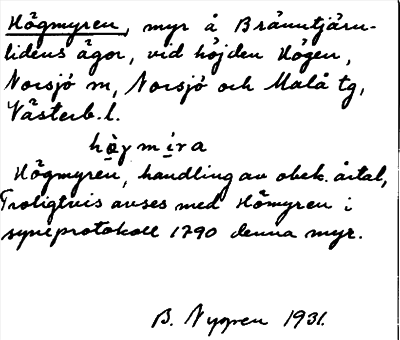 Högmyren, myr å Bränntjärn-
lidens ägor, vid höjden Högen,
Norsjö sn, Norsjö och Malå tg,
Västerb. l.
hö̀gmíra
Högmyren, handling av obek. årtal,
Troligtvis avses med Hömyren i
syneprotokoll 1790 denna myr.
B. Nygren 1931.